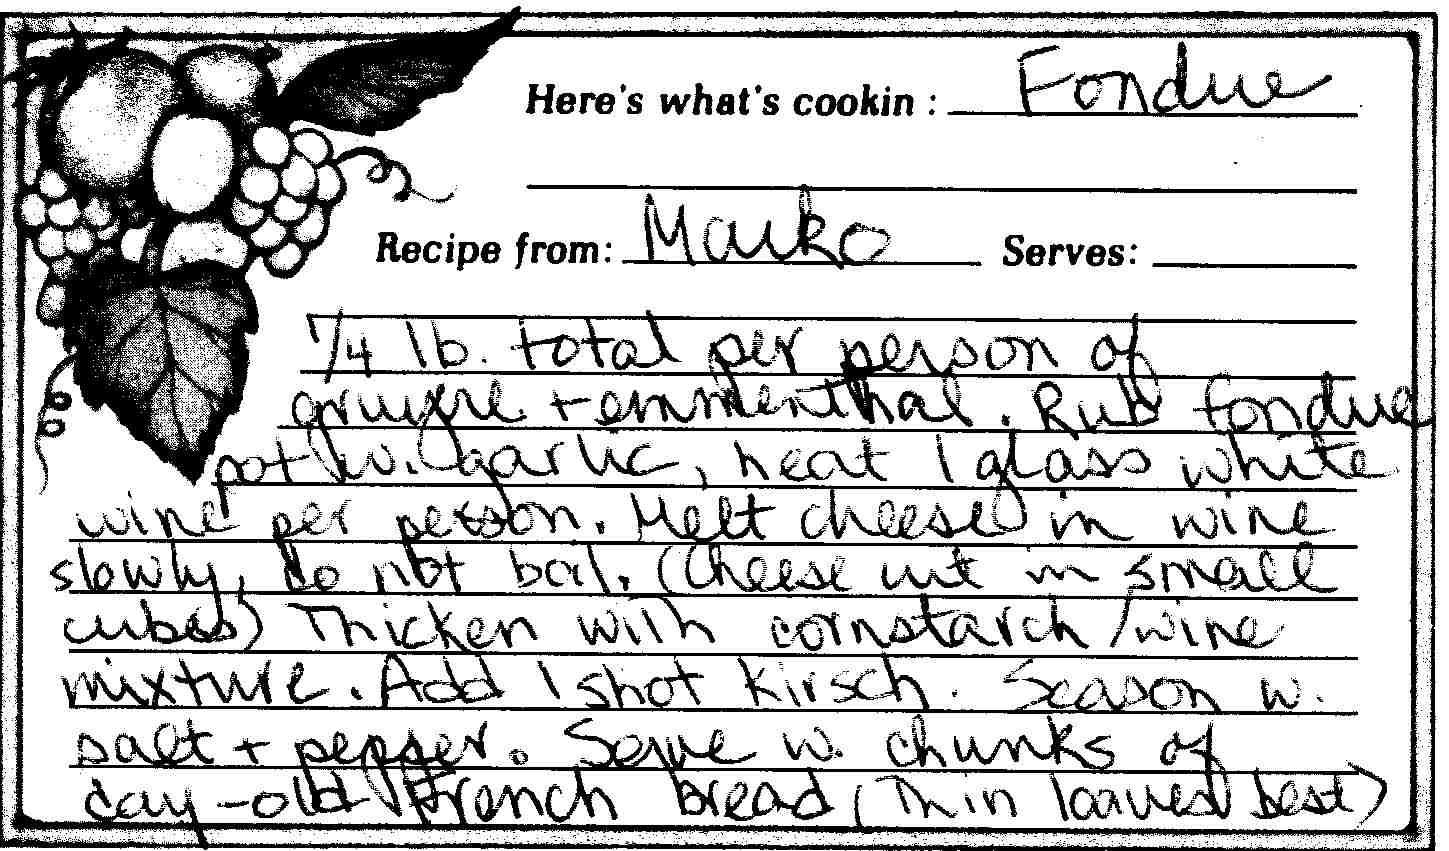 Here's what's cookin : Fondue
Recipe from: Marko Serves:
1/4 lb. total per person of
gruyere + emmenthal. Rub fondue
pot w. garlic, heat 1 glass white
wine per person. Melt cheese in wine
slowly, do not boil. (Cheese cut in small
cubes) Thicken with cornstarch/wine
mixture. Add 1 shot Kirsch. Season w.
salt + pepper. Serve w. chunks of
day-old French bread (Thin loaves best)